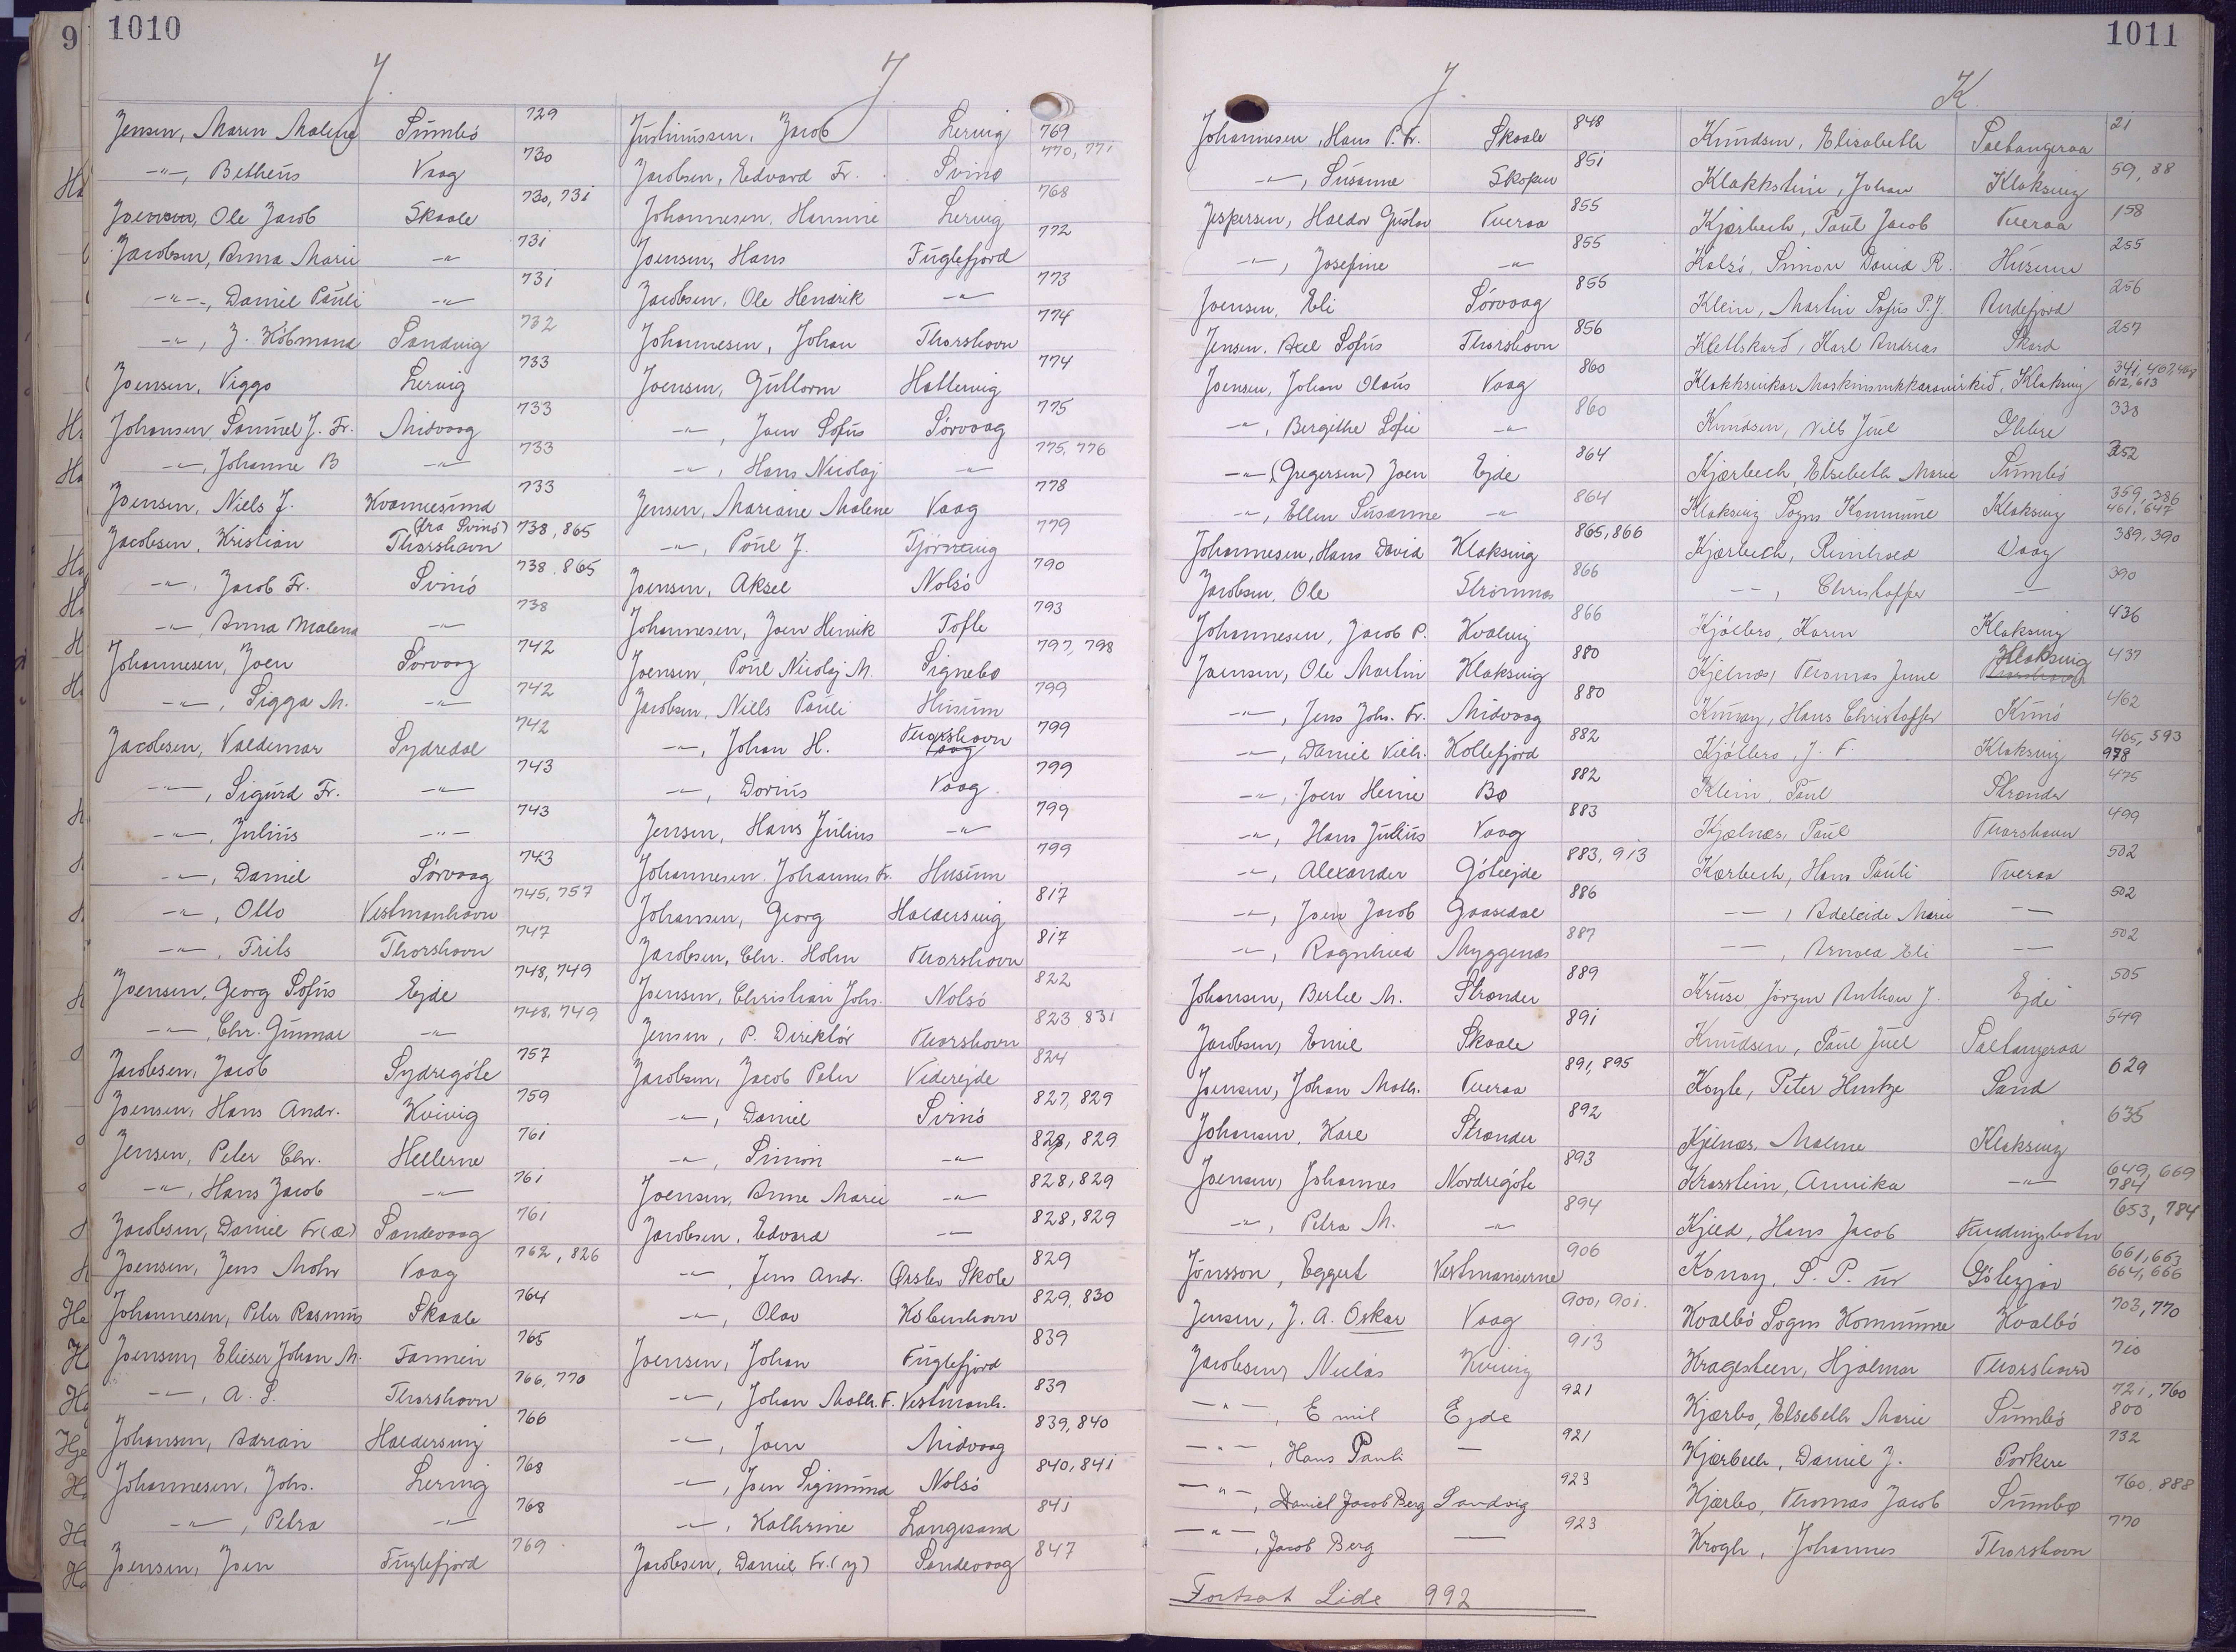 9 1010
J. J.
Jensen, Maren Malene Sumbö 729
-"-, Betheus Vaag 730
Joensen, Ole Jacob Skaale 730, 731
Jacobsen, Anna Marie -"- 731
-"-, Daniel Pauli -"- 731
-"-, J. Köbmand Sandvig 732
Joensen, Viggo Lervig 733
Johansen Samuel J. Fr. Midvaag 733
-"-, Johanne B -"- 733
Joensen, Niels J. Kvannesund 733
Jacobsen, Kristian (fra Svinö) Thorshavn 738, 865
-"-, Jacob Fr. Svinö 738, 865
-"-, Anna Malena -"- 738
Johannesen, Joen Sörvaag 742
-"-, Sigga M. -"- 742
Jacobsen, Valdemar Sydredal 742
-"-, Sigurd Fr. -"- 743
-"-, Julius -"- 743
-"-, Daniel Sörvaag 743
-"-, Otto Vestmanhavn 745, 757
-"-, Frits Thorshavn 747
Joensen, Georg Sofus Ejde 748, 749
-"-, Chr. Gunnar -"- 748, 749
Jacobsen, Jacob Sydregöte 757
Joensen, Hans Andr. Kvivig 759
Jensen, Peter Chr. Hellerne 761
-"-, Hans Jacob -"- 761
Jacobsen, Daniel Fr (æ) Sandevaag 761
Joensen, Jens Mohr Vaag 762, 826
Johannesen, Peter Rasmus Skaale 764
Joensen, Elieser Johan M. Famnein 765
-"-, A. S. Thorshavn 766, 770
Johansen, Adrian Haldersvig 766
Johannesen, Johs. Lervig 768
-"-, Petra -"- 768
Joensen, Joen Fuglefjord 769
Justinussen, Jacob Lervig 769
Jacobsen, Edvard Fr. Svinø 770, 771
Johannesen, Hansine Lervig 768
Joensen, Hans Fuglefjord 772
Jacobsen, Ole Hendrik -"- 773
Johannesen, Johan Thorshavn 774
Joensen, Guttorm Hattervig 774
-"-, Joen Sofus Sörvaag 775
-"-, Hans Nicolaj -"- 775, 776
Jensen, Mariane Malene Vaag 778
-"-, Poul J. Tjörnevig 779
Joensen, Aksel Nolsö 790
Johannesen, Joen Henrik Tofte 793
Joensen, Poul Nicolaj M. Signebø 797, 798
Jacobsen, Niels Pauli Husum 799
-"-, Johan H. Thorshavn Vaag 799
-"-, Dorius Vaag 799
Jensen, Hans Julius -"- 799
Johannesen, Johannes Fr. Husum 799
Johansen, Georg Haldersvig 817
Jacobsen, Chr. Holm Thorshavn 817
Joensen, Christian Johs. Nolsö 822
Jensen, P. Direktör Thorshavn 823, 831
Jacobsen, Jacob Peter Viderejde 824
-"-, Daniel Svinö 827, 829
-"-, Simon -"- 828, 829
Joensen, Anne Marie -"- 828, 829
Jacobsen, Edvard -"- 828, 829
-"-, Jens Andr. Ørslev Skole 829
-"-, Olav København 829, 830
Joensen, Johan Fuglefjord 839
-"-, Johan Math. F. Vestmanh. 839
-"-, Joen Midvaag 839, 840
-"-, Joen Sigmund Nolsö 840, 841
-"-, Kathrine Langesand 841
Jacobsen, Daniel Fr. (y) Sandevaag 847
1011
J. K.
Johannesen, Hans P. Fr. Skaale 848
-"-, Susanne Skopun 851
Jespersen, Haldor Gustav Tveraa 855
-"-, Josefine -"- 855
Joensen, Eli Sörvaag 855
Jensen, Axel Sofus Thorshavn 856
Joensen, Johan Olaus Vaag 860
-"-, Bergithe Sofie -"- 860
-"- (Gregersen) Joen Ejde 864
-"-, Ellen Susanne -"- 864
Johannesen, Hans David Klaksvig 865, 866
Jacobsen, Ole Strömnæs 866
Johannesen, Jacob P. Kvalvig 866
Joensen, Ole Martin Klaksvig 880
-"-, Jens Johs. Fr. Midvaag 880
-"-, Daniel Vilh. Kollefjord 882
-"-, Joen Heine Bø 882
-"-, Hans Julius Vaag 883
-"-, Alexander Göteejde 883, 913
-"-, Joen Jacob Gaasedal 886
-"-, Ragnhild Myggenæs 887
Johansen, Bertel M. Strænder 889
Jacobsen, Emil Skaale 891
Joensen, Johan Math. Tveraa 891, 895
Johansen, Karl Strænder 892
Joensen, Johannes Nordregöte 893
-"-, Petra M. -"- 894
Jónsson, Eggert Vestmanøerne 906
Jensen, J. A. Oskar Vaag 900, 901.
Jacobsen, Niclas Kvivig 913
-"-, Emil Ejde 921
-"-, Hans Pauli — 921
-"-, Daniel Jacob Berg Sandvig 923
-"-, Jacob Berg — 923
Fortsat Side 992
Knudsen, Elisabeth Saltangeraa 21
Klakkstein, Johan Klaksvig 59, 88
Kjærbech, Poul Jacob Tveraa 158
Kalsö, Simon David R. Husum 255
Klein, Martin Sofus P. J. Andefjord 256
Klettskarð, Karl Andreas Skard 257
Klakksvikar Maskinsnikkaravirkið, Klaksvig 341, 407, 468 612, 613
Knudsen, Niels Juel Glibre 338
Kjærbech, Elsebeth Marie Sumbö 352
Klaksvig Sogns Kommune Klaksvig 359, 386 461, 647
Kjærbech, Reinhold Vaag 389, 390
-"-, Christoffer -"- 390
Kjölbro, Karin Klaksvig 436
Kjelnæs, Thomas June Klaksvig 437
Kunoy, Hans Christoffer Kunö 462
Kjölbro, J. F. Klaksvig 465, 593 978
Klein, Poul Strænder 475
Kjælnes, Poul Thorshavn 499
Kærbech, Hans Pauli Tveraa 502
-"-, Adeleide Marie -"- 502
-"-, Arnold Eli -"- 502
Kruse Jörgen Anthon J. Ejde 505
Knudsen, Poul Juel Saltangeraa 549
Koyle, Peter Hentze Sand 629
Kjelnæs, Malene Klaksvig 635
Krosstein, Annika -"- 649, 669 784
Kjeld, Hans Jacob Fundingsbotn 653, 784
Konoy, S. P. úr Götegjov 661, 663 664, 666
Kvalbö Sogns Kommune Kvalbö 703, 770
Kragesteen, Hjalmar Thorshavn 710
Kjærbo, Elsebeth Marie Sumbö 721, 760 800
Kjærbech, Daniel J. Porkere 732
Kjærbo, Thomas Jacob Sumbø 760, 888
Krogh, Johannes Thorshavn 770